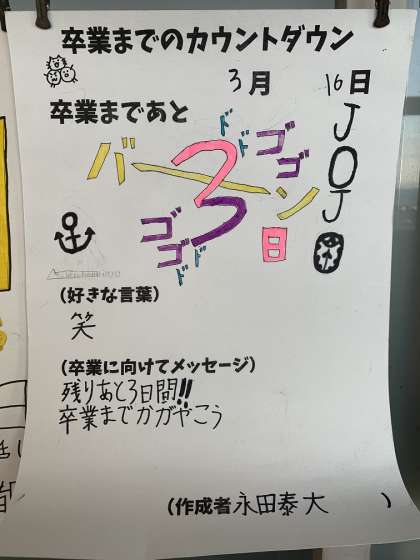 卒業までのカウントダウン
3月 16日
卒業まであと
バーン
3日
ドド
ゴゴ
ゴゴ
ドド
JOJO
(好きな言葉)
笑
(卒業に向けてメッセージ)
残りあと3日間!!
卒業までかがやこう
(作成者 永田泰大 )